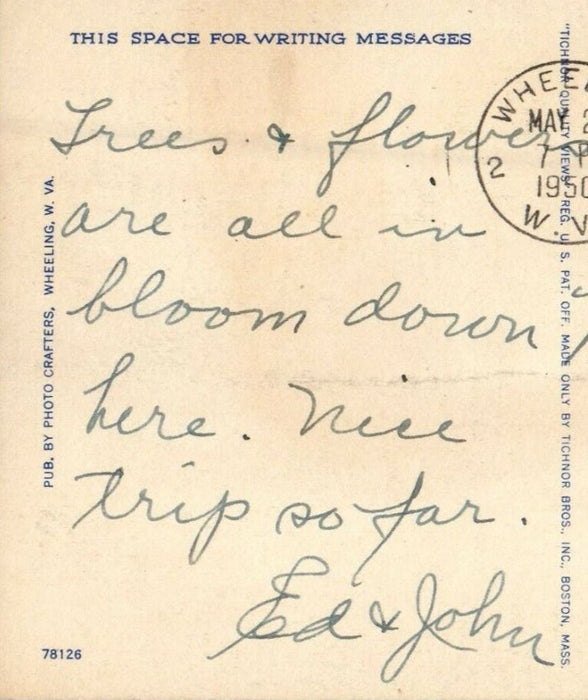 THIS SPACE FOR WRITING MESSAGES
Trees & flowers
are all in
bloom down
here. Nice
trip so far.
Ed & John
78126
PUB. BY PHOTO CRAFTERS, WHEELING, W. VA.
"TICHNOR QUALITY VIEWS," REG. U. S. PAT. OFF. MADE ONLY BY TICHNOR BROS., INC., BOSTON, MASS.
MAY
7
1950
2
W. V